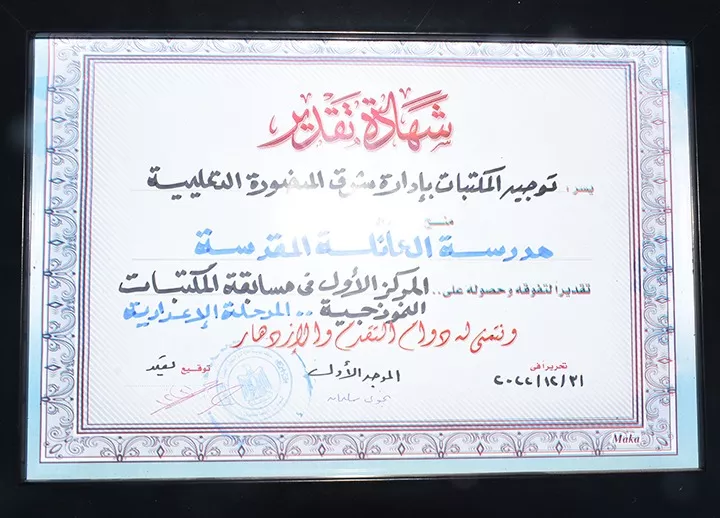 شهادة تقدير
يسر : توجيه المكتبات بإدارة شرق المنصورة التعليمية
منح
مدرسة العائلة المقدسة
تقديرا لتفوقه وحصوله على .. المركز الأول في مسابقة المكتبات
النموذجية .. المرحلة الإعدادية
ونتمنى له دوام التقدم والإزدهار
تحريرا في الموجه الأول توقيع
٢٠٢٢/١٢/٢١
Maka